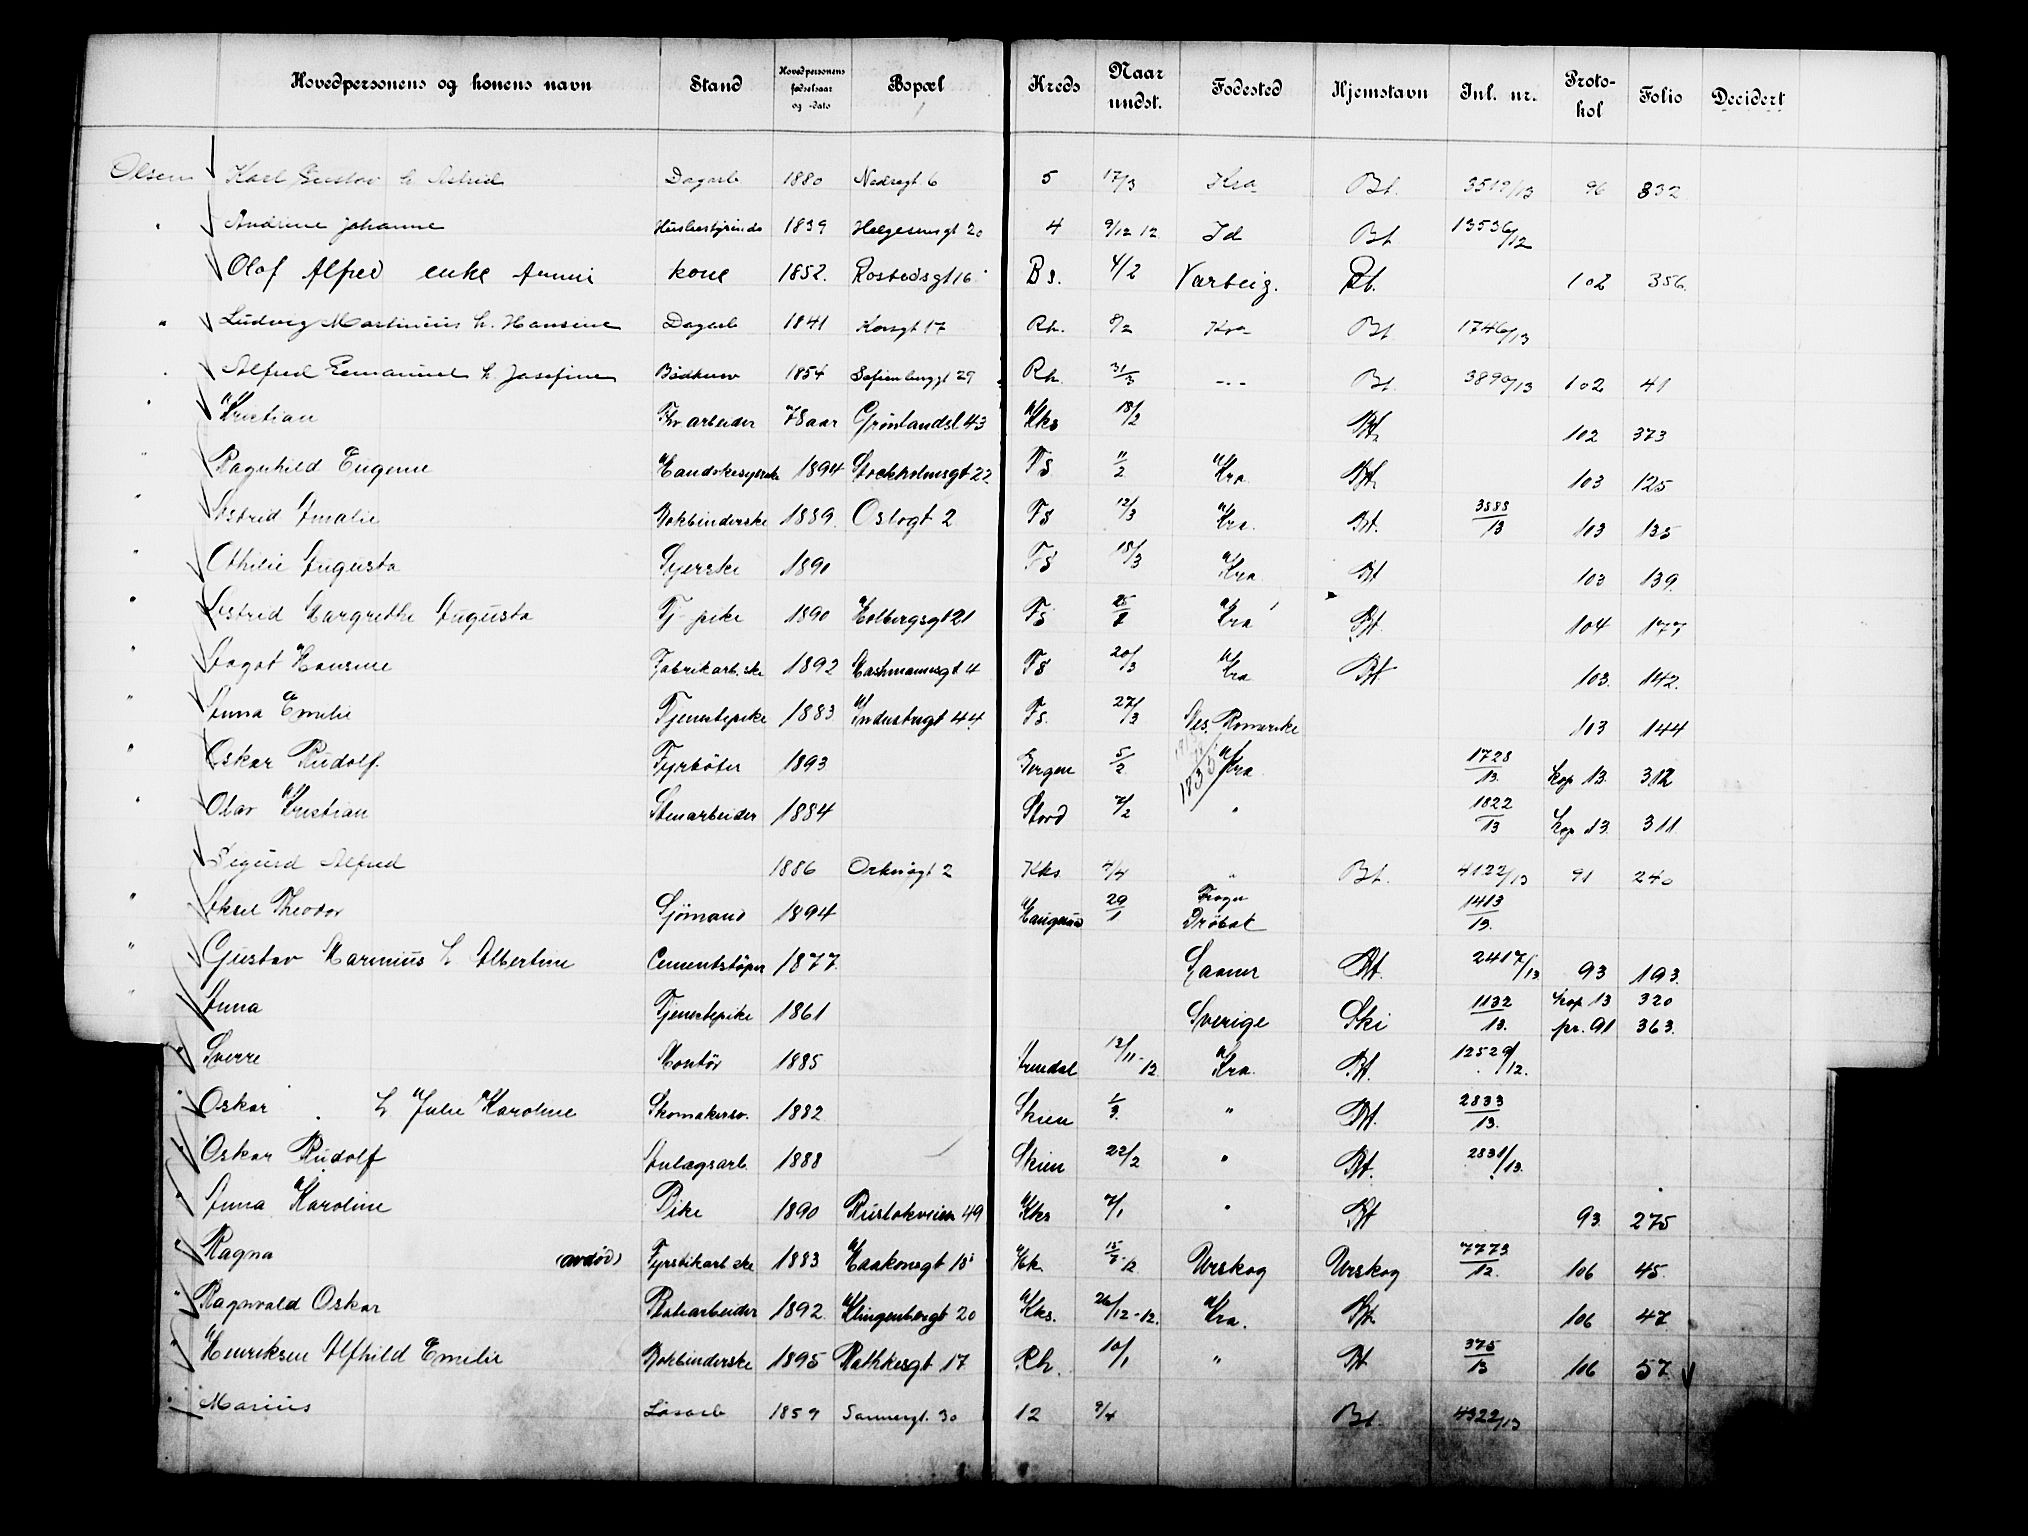 Hovedpersonens og konens navn Stand Hovedpersonens fødselsaar og -dato Bopæl Kreds Naar undst. Fødested Hjemstavn Inl. nr. Protokol Folio Decidert
Olsen Karl Gustav h Astrid Dagarb 1880 Nedregt 6 5 17/3 Kra Bt. 3519/13 96 832
" Andrine Johanne Husbestyrinde 1839 Helgesensgt 20 4 9/12 12 Id Bt 13536/12
Olaf Alfred enke Annie kone 1852. Rostedsgt 16 Bs. 4/2 Varteig. Bt. 102 356.
" Ludvig Martinius h. Hansine Dagarb 1841 Korsgt 17 Rh. 8/2 Kra Bt 1746/13
" Alfred Emanuel h. Josefine Bødker 1854 Sofienberggt 29 Rh. 31/3 --- Bt. 3890/13 102 41
" Kristian Fhv arbeider 78 aar Grønlandsl 43 Kks 18/2 Bt. 102 373
" Ragnhild Eugenie Handskesyerske 1894 Stockholmsgt 22 Fs 11/2 Kra. Bt. 103 125
" Astrid Amalie Bokbinderske 1889. Oslogt 2 Fs 12/3 Kra. Bt. 3888/13 103 135
" Othilie Augusta Syerske 1890 Fs 15/3 Kra. Bt 103 139.
" Astrid Margrethe Augusta Tj. pike 1890 Holbergsgt 21 Fs. Kra Bt. 104 177
" Dagot Hansine Fabrikarb.ske 1892 4 Fs 20/3 Kra Bt 103. 142.
" Anna Emilie Tjenestepike 1883 Industrigt 44. Fs. 27/3 Nes. Romerike 103 144
" Oskar Rudolf. Fyrbøter 1893 Bergen 5/2 Kra. 1728/13. Kop 13. 312
" Olav Kristian Stenarbeider 1884 Stord 7/2 " 1822/13 Kop 13. 311
Sigurd Alfred 1886 Orknøgt 2 Kks 4/4 " Bt. 4122/13 91 240
" Aksel Theodor Sjømand 1894 Haugesund 29/1 Frogn Drøbak 1413/13.
" Gustav Marinius h Albertine Cementstøper 1877. Bt. 2417/13 93 193.
" Anna Tjenestepike 1861 Sverige Ski 1132/13. Kop 13 320
pr. 91 363.
" Sverre Montør 1885 Arendal 12/11-12 Kra. Bt. 12529/12.
" Oskar h Julie Karoline Skomakersv. 1882 Skien 1/3. " Bt. 2833/13.
" Oskar Rudolf Anlægsarb. 1888 Skien 22/2 " Bt. 2831/13.
" Anna Karoline Pike 1890 Ruseløkveien 49 Kks 7/1 " Bt 93. 275
" Ragna (avdød) Fyrstikarb.ske 1883 Haakonsgt 15 Hk. Urskog Urskog 7773/12. 106 45.
" Ragnvald Oskar Postarbeider 1892. Klingenbergt 20 Kks. 26/12-12. Kra. Bt. 106 47.
" Henriksen Alfhild Emilie Bokbinderske 1895 Rathkesgt 17 Rh. 10/1 " Bt 375/13 106 57.
" Marius Løsarb 1859 Sannergt. 30 12 9/4 Bt. 4322/13